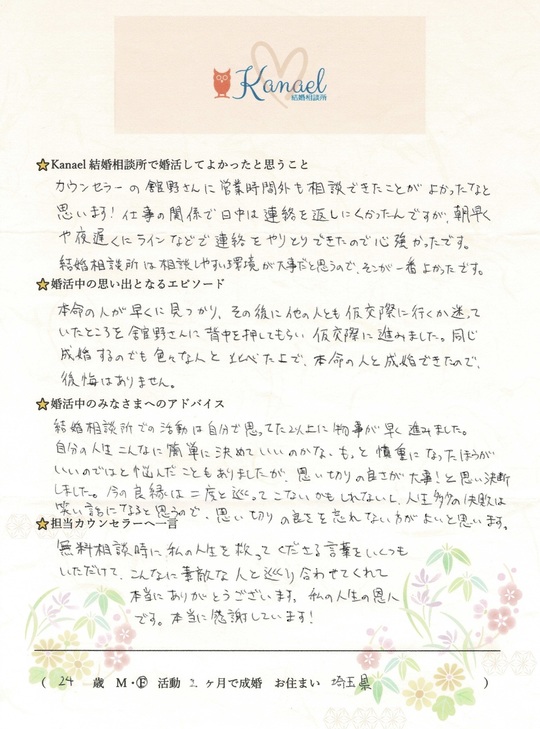 Kanael
結婚相談所
Kanael 結婚相談所で婚活してよかったと思うこと
カウンセラーの舘野さんに営業時間外も相談できたことがよかったなと
思います!仕事の関係で日中は連絡を返しにくかったんですが、朝早く
や夜遅くにラインなどで連絡をやりとりできたので心強かったです。
結婚相談所は相談しやすい環境が大事だと思うので、そこが一番よかったです。
婚活中の思い出となるエピソード
本命の人が早くに見つかり、その後に他の人とも仮交際に行くか迷って
いたところを舘野さんに背中を押してもらい仮交際に進みました。同じ
成婚するのでも色々な人と比べた上で、本命の人と成婚できたので、
後悔はありません。
婚活中のみなさまへのアドバイス
結婚相談所での活動は自分で思ってた以上に物事が早く進みました。
自分の人生こんなに簡単に決めていいのかな、もっと慎重になったほうが
いいのではと悩んだこともありましたが、思い切りの良さが大事!と思い決断
しました。今の良縁は二度と巡ってこないかもしれないし、人生多少の失敗は
笑い話になると思うので、思い切りの良さを忘れない方がよいと思います。
担当カウンセラーへ一言
無料相談時に私の人生を救ってくださる言葉をいくつも
いただけて、こんなに素敵な人と巡り合わせてくれて
本当にありがとうございます。私の人生の恩人
です。本当に感謝しています!
( 24 歳 M・Ⓕ 活動 2 ヶ月で成婚 お住まい 埼玉県 )